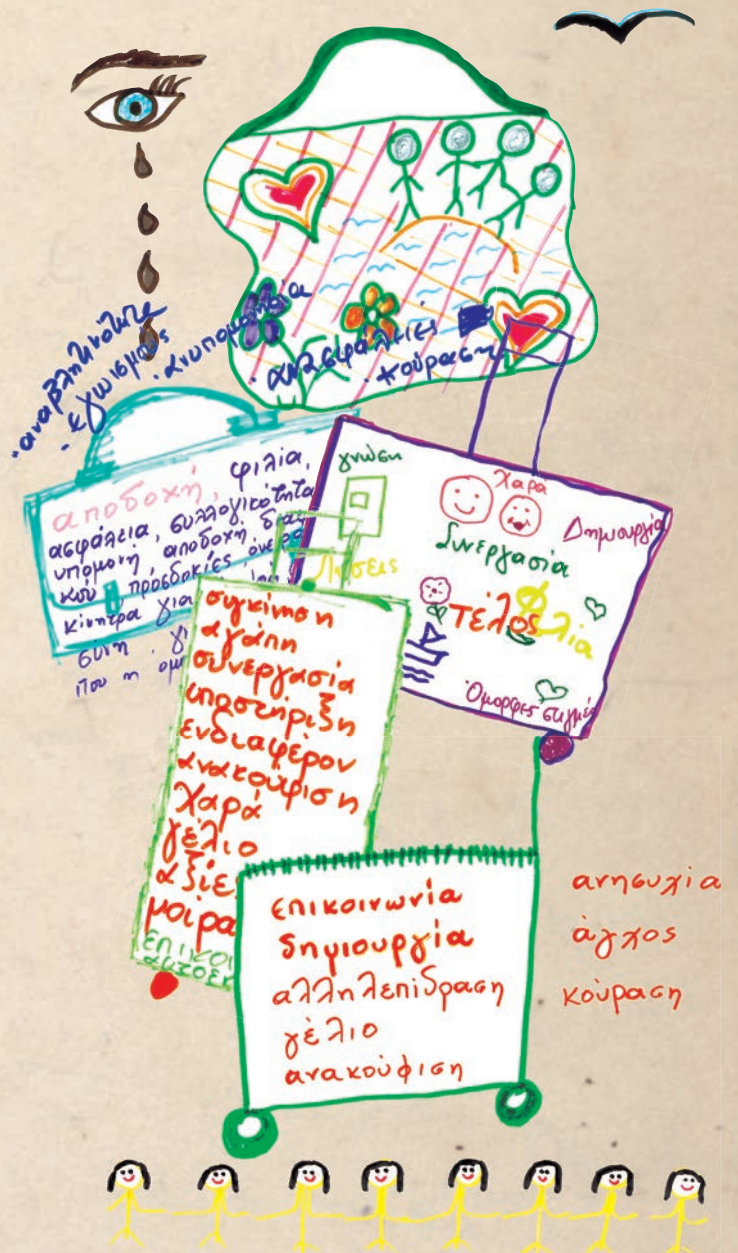 αναβλητικότητα
· εγωισμός
· ανυπομονησία
· ανασφάλειες
· κούραση
αποδοχή, φιλία,
ασφάλεια, συλλογικότητα
υπομονή, αποδοχή δια
και προσδοκίες, όνειρα
κίνητρα για
σύνη, γι
που η ομ
γνώση
Χαρά
Δημιουργία
Συνεργασία
Λύσεις
τέλος
Φιλία
Όμορφες στιγμές
συγκίνηση
αγάπη
συνεργασία
υποστήριξη
ενδιαφέρον
ανακούφιση
χαρά
γέλιο
αξίε
μοίρα
επικοι
επικοινωνία
δημιουργία
αλληλεπίδραση
γέλιο
ανακούφιση
ανησυχία
άγχος
κούραση